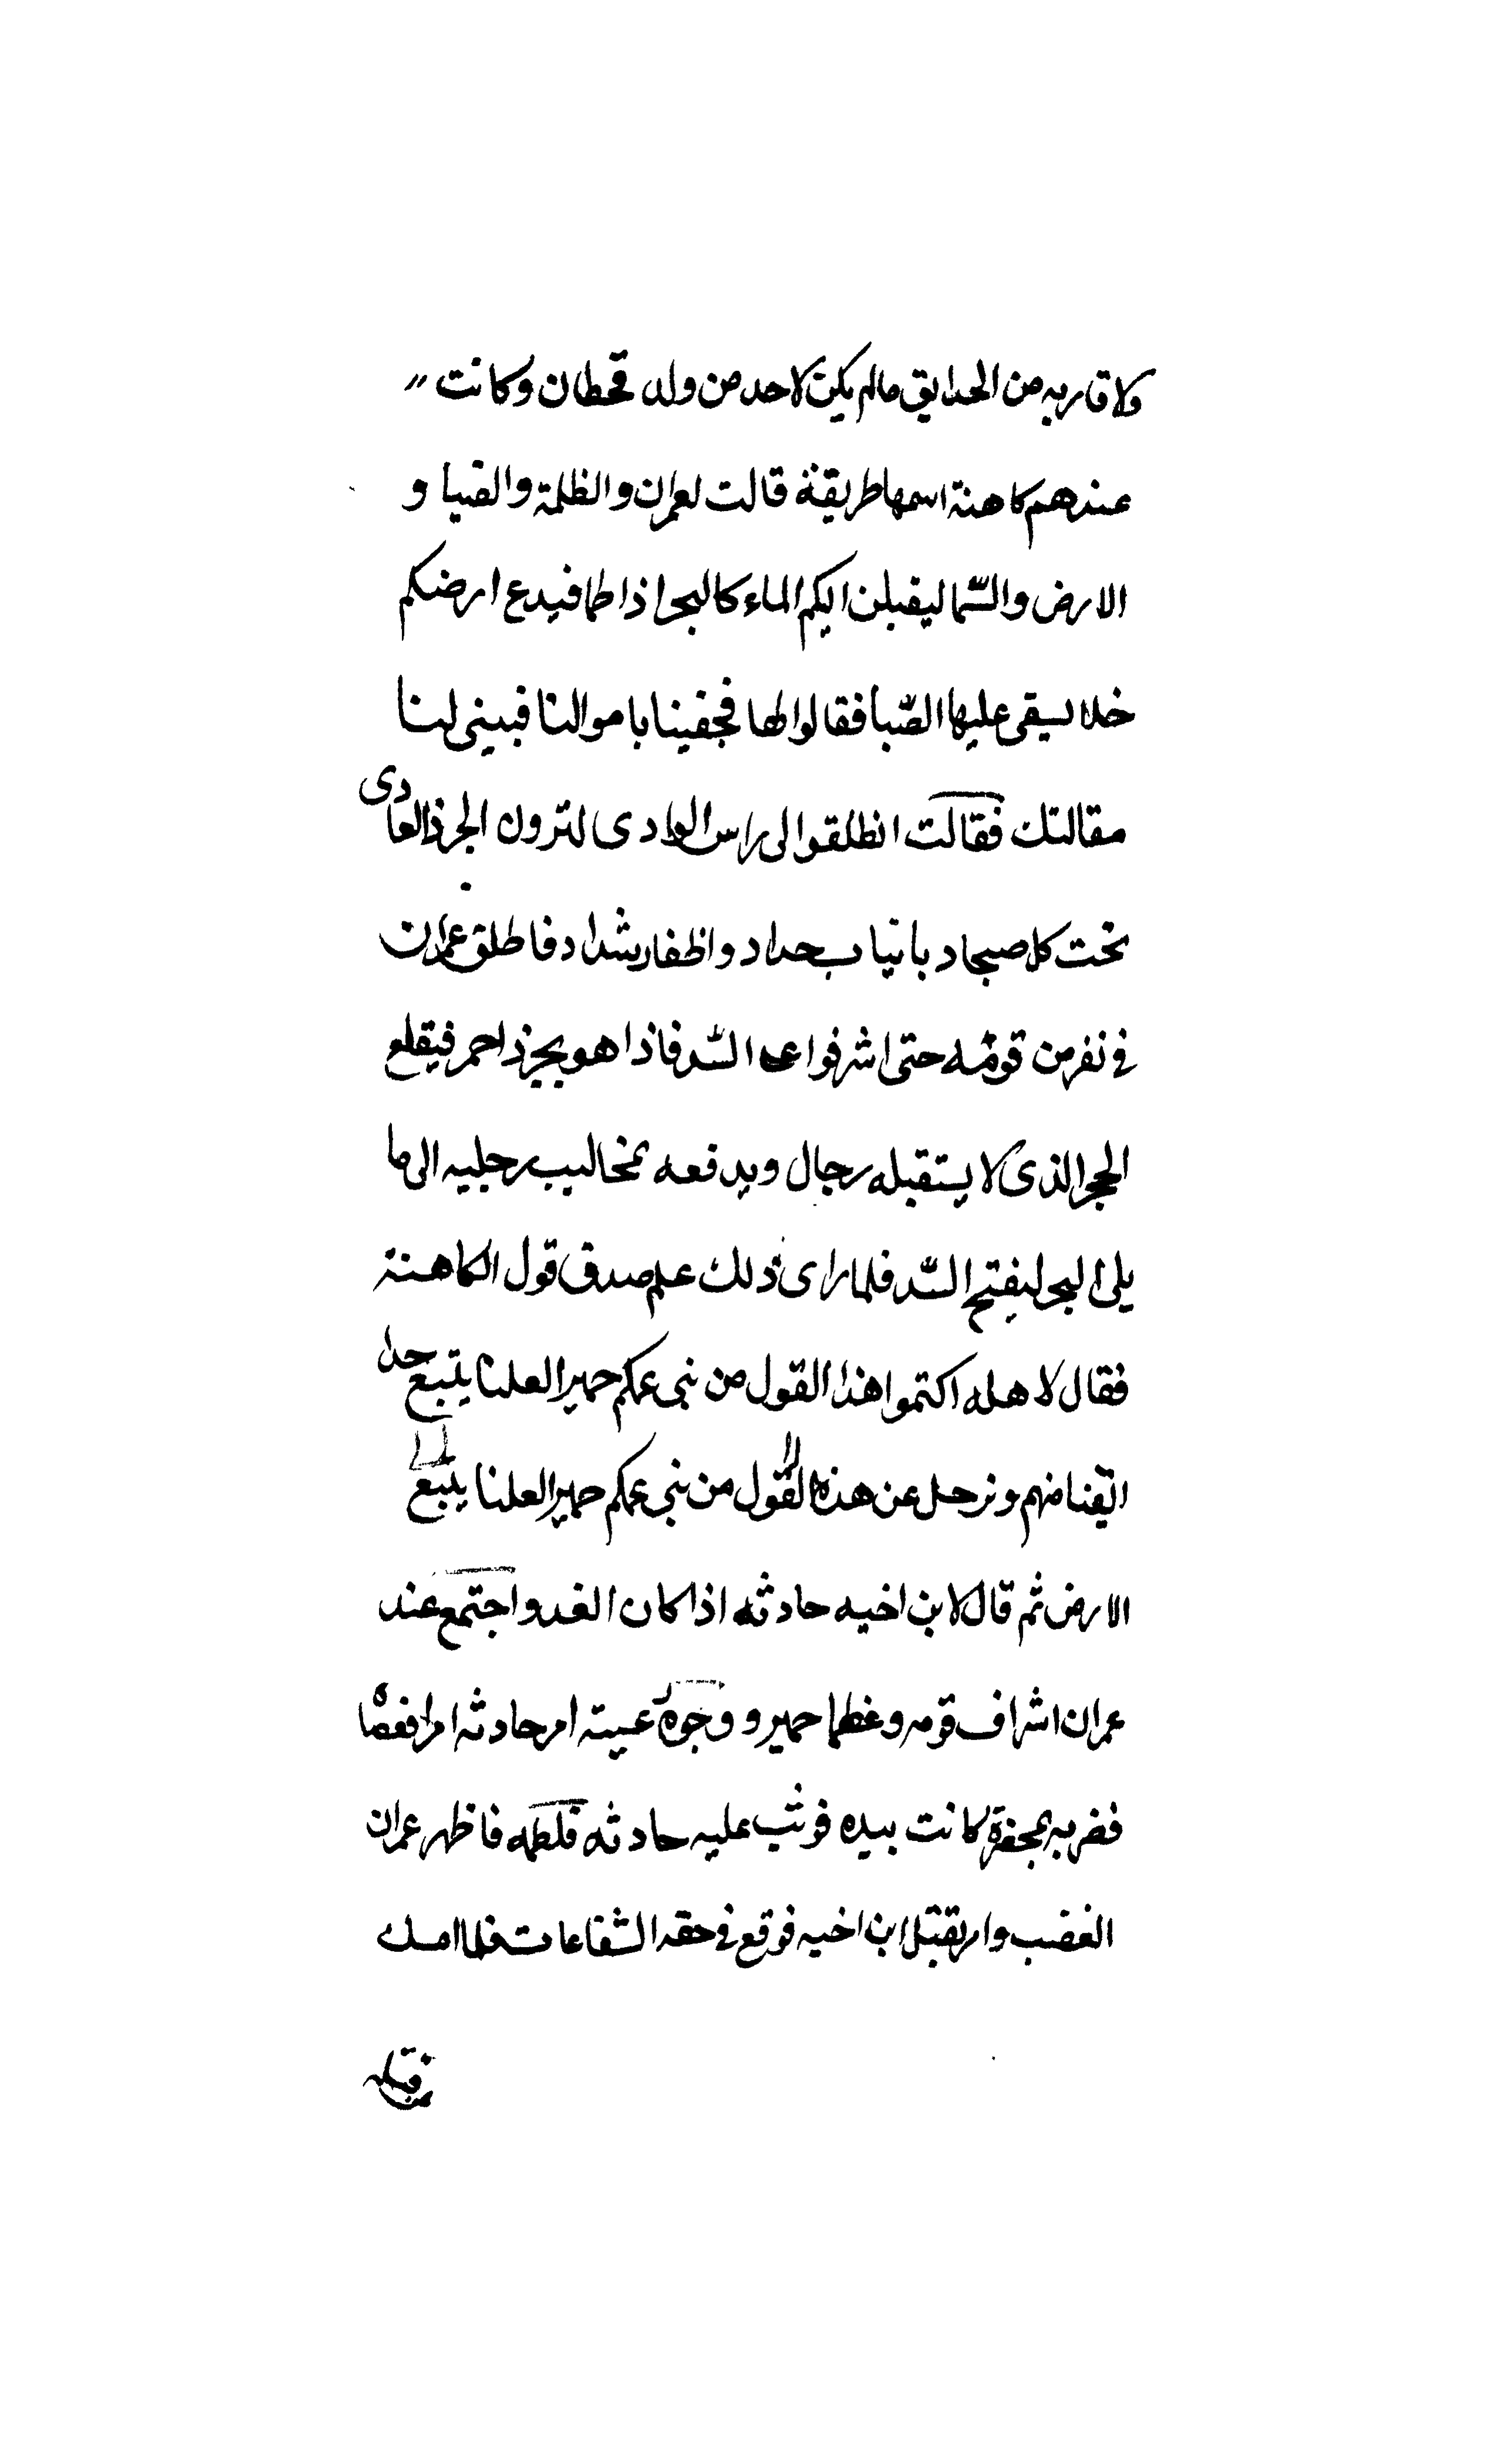 ولاقاربه من الحدايق مالم يكن لاحد من ولد قحطان وكانت
عندهم كاهنة اسمها طريقة قالت لعمران والظلمة والضيا و
الارض والسّما ليقبلن اليكم الماء كالبحر اذا طما فيدع ارضكم
خلا يسقى عليها الصّبا فقالوا لها فجفينا باموالنا فبينى لنا
مقالتك فقالت انطلقوا الى راس الوادى لترون الجرذ العادى
تحت كل صيجاد بانياب حداد واظفار شداد فاطلق عمران
فى نفر من قومه حتى اشرفوا على السّد فاذا هو بجرذ احمر فيقلع
الحجر الذى لا يستقبله رجال ويدفعه بمخاليب رجليه الى ما
يلى البحر ليفتح السّد فلما راى ذلك علم صدق قول الكاهنة
فقال لاهله اكتموا هذا القول من بنى عمكم حمير العلنا يتبع حدا
القول من بنى عمكم حمير العلنا يتبع ونرحل عن هذه
الارض ثم قال لابن اخيه حادثه اذا كان الغد واجتمع عند
عمران اشراف قومه وعظما حمير و وجوه عسيته امر حادثه امرا
فضربه بمجفرة كانت بيده فوثب عليه حادثه فلطمه فاظهر عمران
الغضب وامر بقتل ابن اخيه فوقع فى حقه الشفاعات فلما امسك